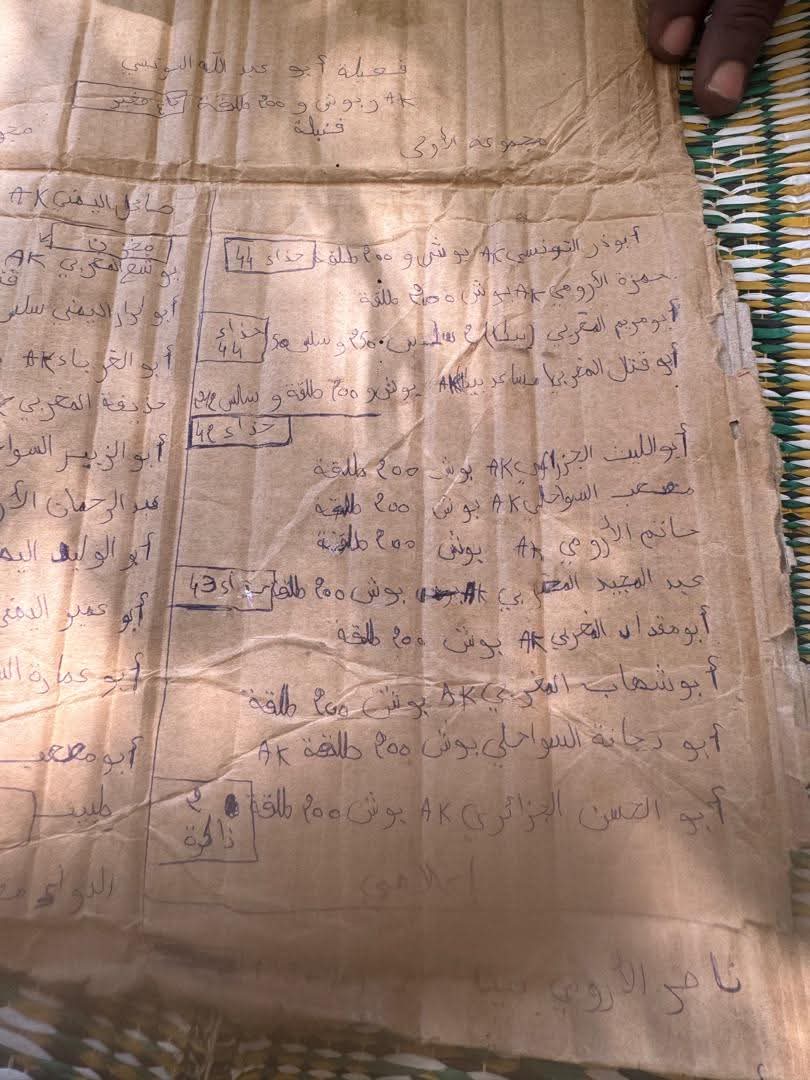 فصيلة أبو عبد الله التونسي
AK وبوش و 200 طلقة
قنبلة
مجموعة الأولى
أبوذر التونسي AK بوش و 200 طلقة حذاء 44
حمزة الأرومي AK بوش 200 طلقة
أبو مريم المغربي (بيكا) 250 و سلس 50 حذاء 44
أبو قتال المغربي مساعد بيكا AK بوش و 200 طلقة و سلس
حذاء 42
أبو الليث الجزائري AK بوش 200 طلقة
مصعب السواحلي AK بوش 200 طلقة
حاتم الأرومي AK بوش 200 طلقة
عبد المجيد المغربي AK بوش 200 طلقة حذاء 43
أبو مقداد المغربي AK بوش 200 طلقة
أبو شهاب المغربي AK بوش 200 طلقة
أبو دجانة السواحلي بوش 200 طلقة AK
أبو الحسن الجزائري AK بوش 200 طلقة 2 ذاكرة
ناصر الأرومي
اليمني AK
المغربي AK
أبو كرار اليمني سلس
أبو الغرباء AK
حذيفة المغربي
أبو الزبير السوا
عبد الرحمان الأر
أبو الوليد اليم
أبو عمير اليمني
أبو عمارة الس
أبو مصعب
طبيب